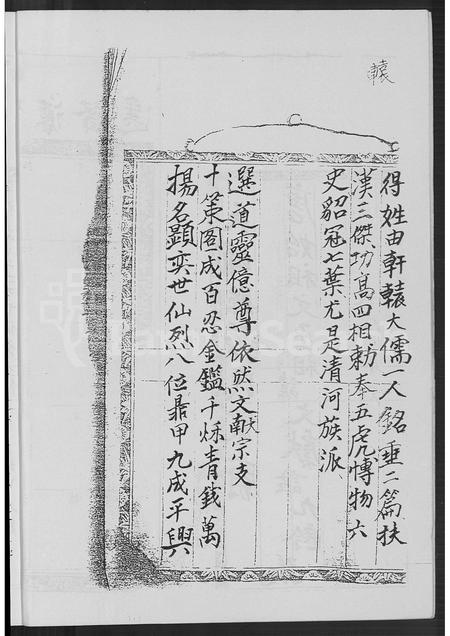 轅
得姓由軒轅大儒一人銘垂二篇扶
漢三傑功高四相勅奉五虎博物六
史貂冠七葉尤是清河族派
選道靈億尊依然文献宗支
十策图成百忍金鑑千烁青錢萬
揚名顕奕世仙烈八位鼎甲九成平興